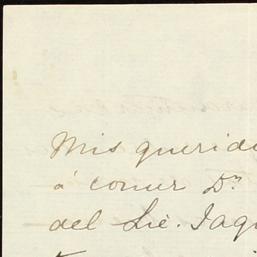 Mis querid
á comer Dn
del Lic. Iag